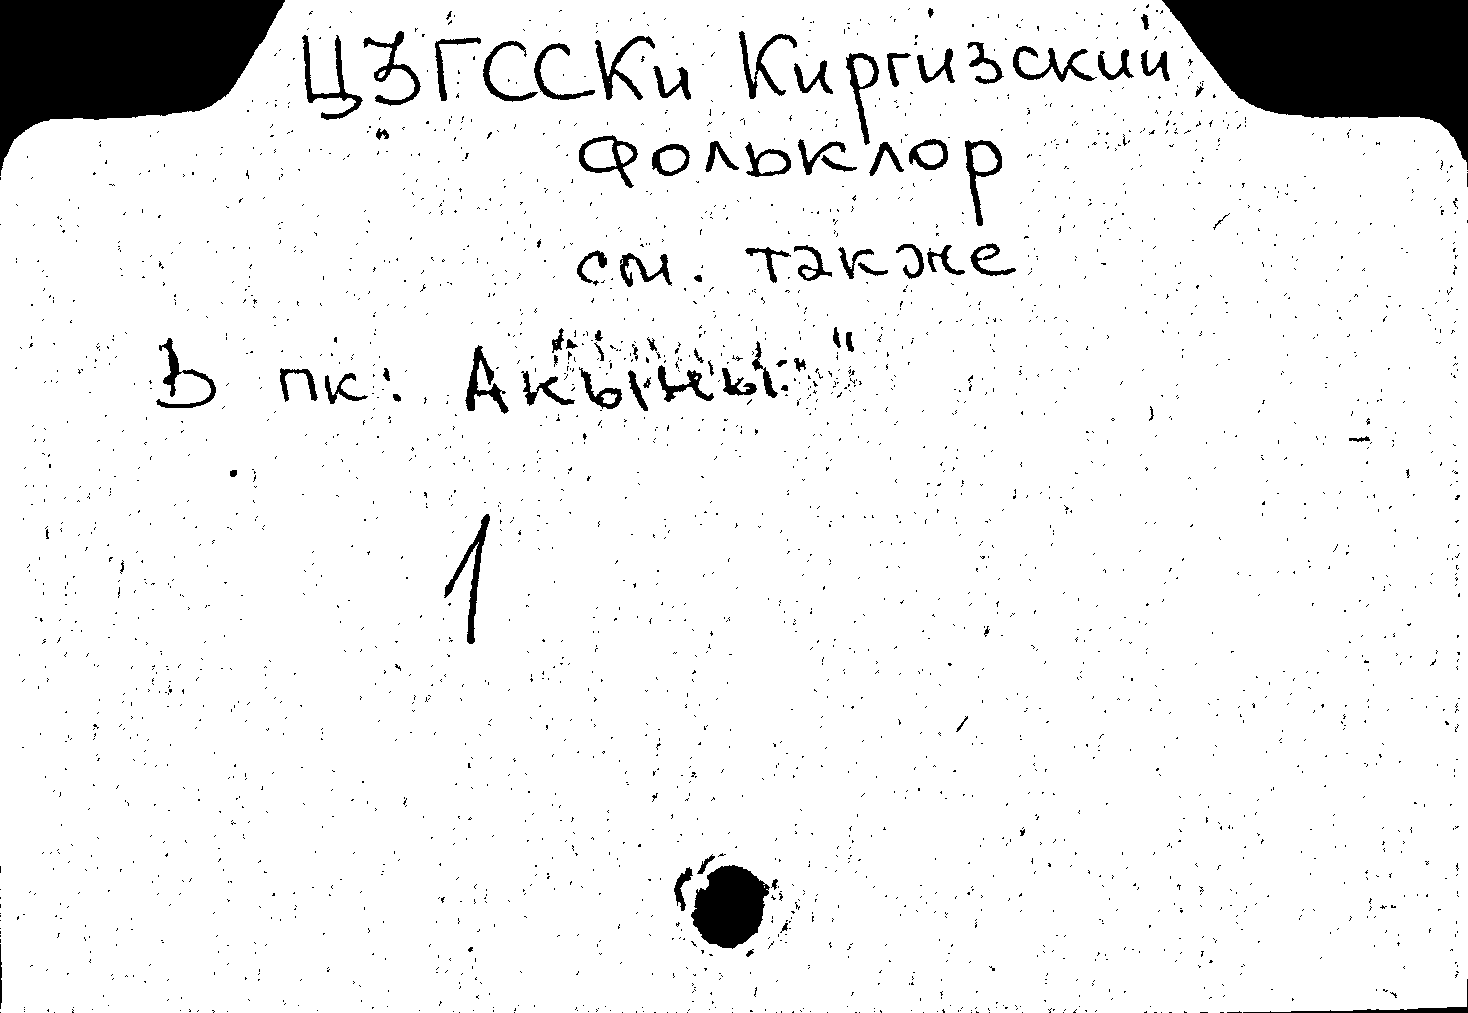 ЦЗГССКи Киргизский
фольклор
см. также
В пк: Акыны"
1